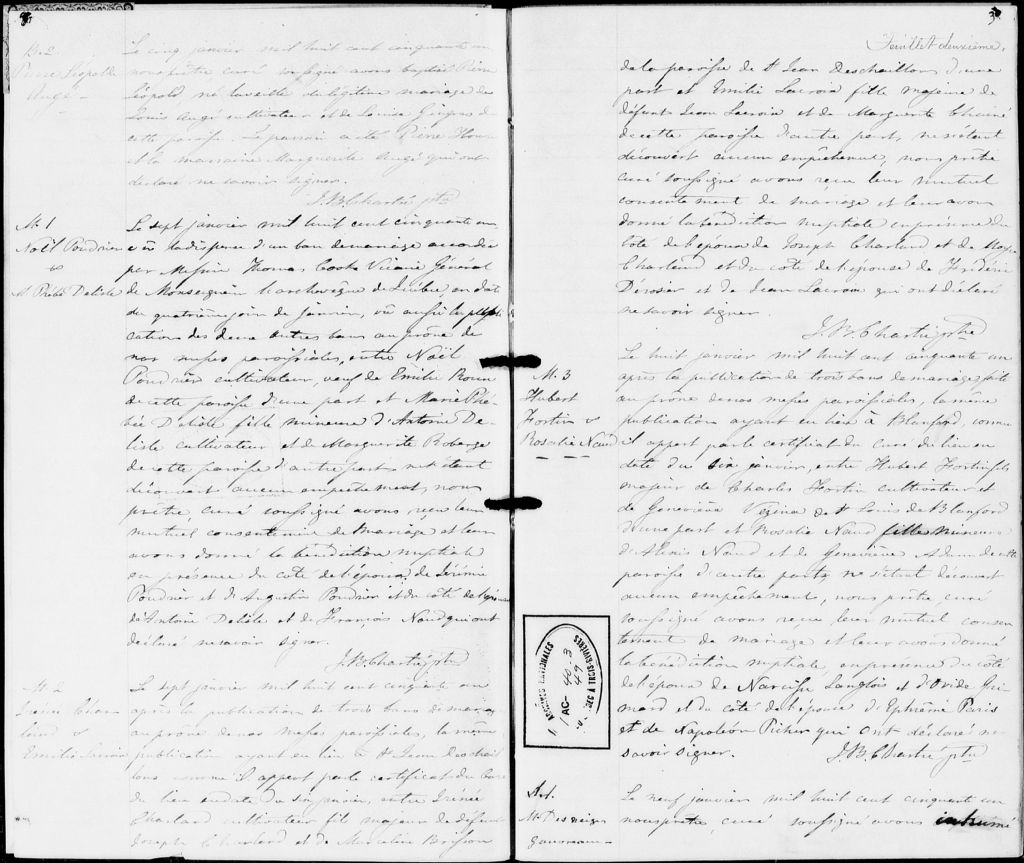 B. 2
Pierre Léopold
Augé
Le cinq janvier mil huit cent cinquante un
nous prêtre curé soussigné avons baptisé Pierre
Léopold, né la veille du légitime mariage de
Louis Augé cultivateur et de Louise Gingras de
cette paroisse. Le parrain a été Pierre
et la marraine Marguerite Augé qui ont
déclaré ne savoir signer.
J. B. Chartié ptre
M. 1
Noël Poudrier
&
M. Phébé Delisle
Le sept janvier mil huit cent cinquante un
vû la dispense d'un ban de mariage accordée
par Messire Thomas Cooke Vicaire Général
de Monseigneur l'archevêque de Québec, en date
du quatrième jour de janvier, vû aussi la publi
cation des deux autres bans au prône de
nos messes paroissiales, entre Noël
Poudrier cultivateur, veuf de Emilie
de cette paroisse d'une part et Marie Phé-
bée Delisle fille mineure d'Antoine De-
lisle cultivateur et de Marguerite Roberge
de cette paroisse d'autre part, ne s'étant
découvert aucun empêchement, nous
prêtre, curé soussigné avons reçu leur
mutuel consentement de mariage et leur
avons donné la bénédiction nuptiale
en présence du côté de l'époux, de Jérémie
Poudrier et d'Augustin Poudrier et du côté de l'épouse
d'Antoine Delisle et de François Naud qui ont
déclaré ne savoir signer.
J. B. Chartié ptre
M. 2
Irénée Char-
land &
Emilie Lacroix
Le sept janvier mil huit cent cinquante un
après la publication de trois bans de mariage
au prône de nos messes paroissiales, la même
publication ayant eu lieu à St Jean Deschail
lons comme il appert par le certificat du Curé
du lieu en date du six janvier, entre Irénée
Charland cultivateur fils majeur de défunt
Joseph Charland et de Marceline Brisson
3
Feuillet deuxième.
de la paroisse de St Jean Deschaillons d'une
part et Emilie Lacroix fille majeure de
défunt Jean Lacroix et de Marguerite
de cette paroisse d'autre part, ne s'étant
découvert aucun empêchement, nous prêtre
curé soussigné avons reçu leur mutuel
consentement de mariage et leur avons
donné la bénédiction nuptiale en présence du
côté de l'époux de Joseph Charland et de
Charland et du côté de l'épouse de Frédéric
Désosier et de Jean Lacroix qui ont déclaré
ne savoir signer.
J. B. Chartié ptre
M. 3
Hubert
Fortin &
Rosalie Naud
Le huit janvier mil huit cent cinquante un
après la publication de trois bans de mariage faite
au prône de nos messes paroissiales, la même
publication ayant eu lieu à Blanford, comme
il appert par le certificat du Curé du lieu en
date du six janvier, entre Hubert Fortin fils
majeur de Charles Fortin cultivateur et
de Geneviève Vezina de St Louis de Blanford
d'une part et Rosalie Naud fille mineure
d'Alexis Naud et de Geneviève de cette
paroisse d'autre part, ne s'étant découvert
aucun empêchement, nous prêtre, curé
soussigné avons reçu leur mutuel consen
tement de mariage et leur avons donné
la bénédiction nuptiale, en présence du côté
de l'époux de Narcisse Langlois et d'Ovide Gri-
mard et du côté de l'épouse d'Ephrème Paris
et de Napoléon Picher qui ont déclaré ne
savoir signer.
J. B. Chartié ptre
ARCHIVES NATIONALES
AC- 40.3
49
DU QUÉBEC À TROIS-RIVIÈRES
M. Desneiges
Le neuf janvier mil huit cent cinquante un
nous prêtre, curé soussigné avons inhumé